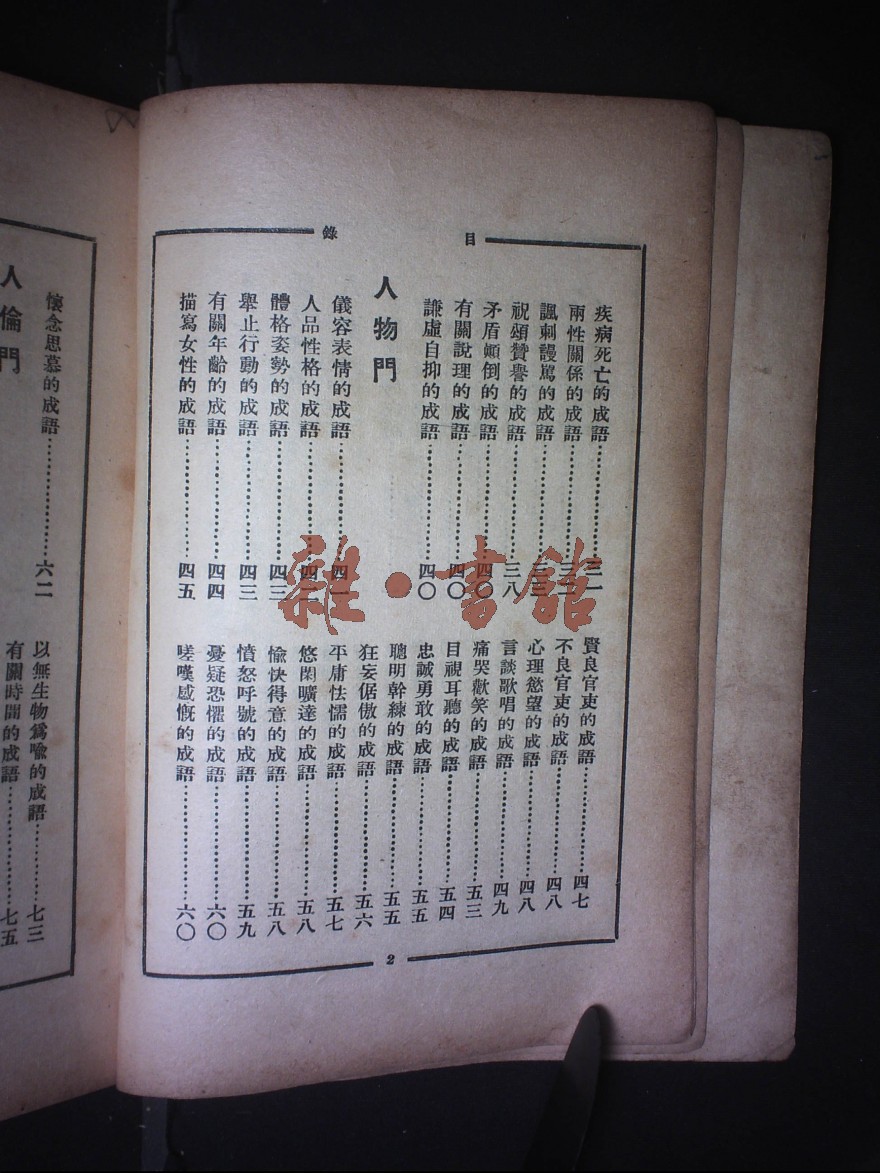 目錄
疾病死亡的成語⋯⋯⋯⋯三一
兩性關係的成語⋯⋯⋯⋯
諷刺謾駡的成語⋯⋯⋯⋯
祝頌贊譽的成語⋯⋯⋯⋯三八
矛盾顚倒的成語⋯⋯⋯⋯四〇
有關說理的成語⋯⋯⋯⋯四〇
謙虛自抑的成語⋯⋯⋯⋯四〇
人物門
儀容表情的成語⋯⋯⋯⋯四一
人品性格的成語⋯⋯⋯⋯四二
體格姿勢的成語⋯⋯⋯⋯四三
舉止行動的成語⋯⋯⋯⋯四三
有關年齡的成語⋯⋯⋯⋯四四
描寫女性的成語⋯⋯⋯⋯四五
賢良官吏的成語⋯⋯⋯⋯四七
不良官吏的成語⋯⋯⋯⋯四八
心理慾望的成語⋯⋯⋯⋯四八
言談歌唱的成語⋯⋯⋯⋯四九
痛哭歡笑的成語⋯⋯⋯⋯五三
目視耳聽的成語⋯⋯⋯⋯五四
忠誠勇敢的成語⋯⋯⋯⋯五五
聰明幹練的成語⋯⋯⋯⋯五五
狂妄倨傲的成語⋯⋯⋯⋯五六
平庸怯懦的成語⋯⋯⋯⋯五七
悠閑曠達的成語⋯⋯⋯⋯五八
愉快得意的成語⋯⋯⋯⋯五八
憤怒呼號的成語⋯⋯⋯⋯五九
憂疑恐懼的成語⋯⋯⋯⋯六〇
嗟嘆感慨的成語⋯⋯⋯⋯六〇
2
懷念思慕的成語⋯⋯⋯⋯六二
人倫門
以無生物爲喩的成語⋯⋯⋯⋯七三
有關時間的成語⋯⋯⋯⋯七五
雜·書館